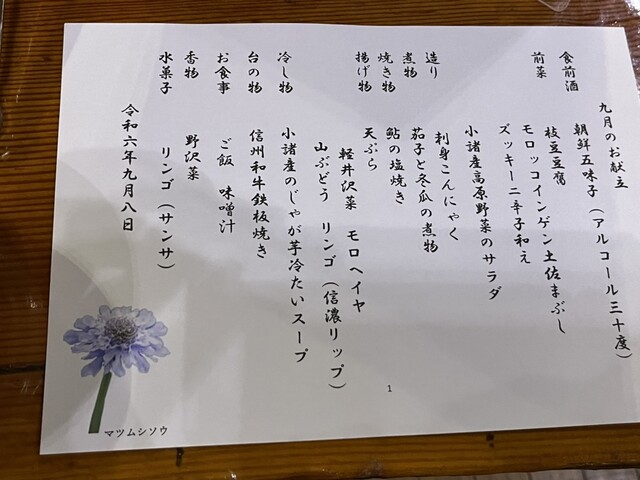 九月のお献立
食前酒　朝鮮五味子（アルコール三十度）
前菜　枝豆豆腐
モロッコインゲン土佐まぶし
ズッキーニ辛子和え
小諸産高原野菜のサラダ
造り　刺身こんにゃく
煮物　茄子と冬瓜の煮物
焼き物　鮎の塩焼き
揚げ物　天ぷら
軽井沢菜　モロヘイヤ
山ぶどう　リンゴ（信濃リップ）
冷し物　小諸産のじゃが芋冷たいスープ
台の物　信州和牛鉄板焼き
お食事　ご飯　味噌汁
香物　野沢菜
水菓子　リンゴ（サンサ）
令和六年九月八日
1
マツムシソウ